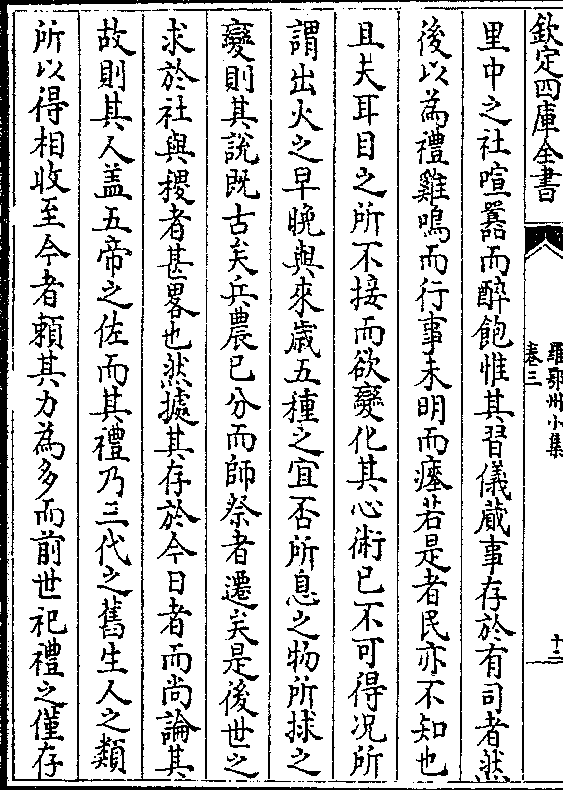 欽定四庫全書
羅鄂州小集
卷三
十二
里中之社喧嚣而醉飽惟其習儀蕆事存於有司者然
後以為禮雞鳴而行事未明而瘞若是者民亦不知也
且夫耳目之所不接而欲變化其心術已不可得况所
謂出火之早晚與來歳五種之宜否所息之物所捄之
變則其說既古矣兵農已分而師祭者遷矣是後世之
求於社與稷者甚畧也然據其存於今日者而尚論其
故則其人盖五帝之佐而其禮乃三代之舊生人之類
所以得相收至今者頼其力為多而前世祀禮之僅存